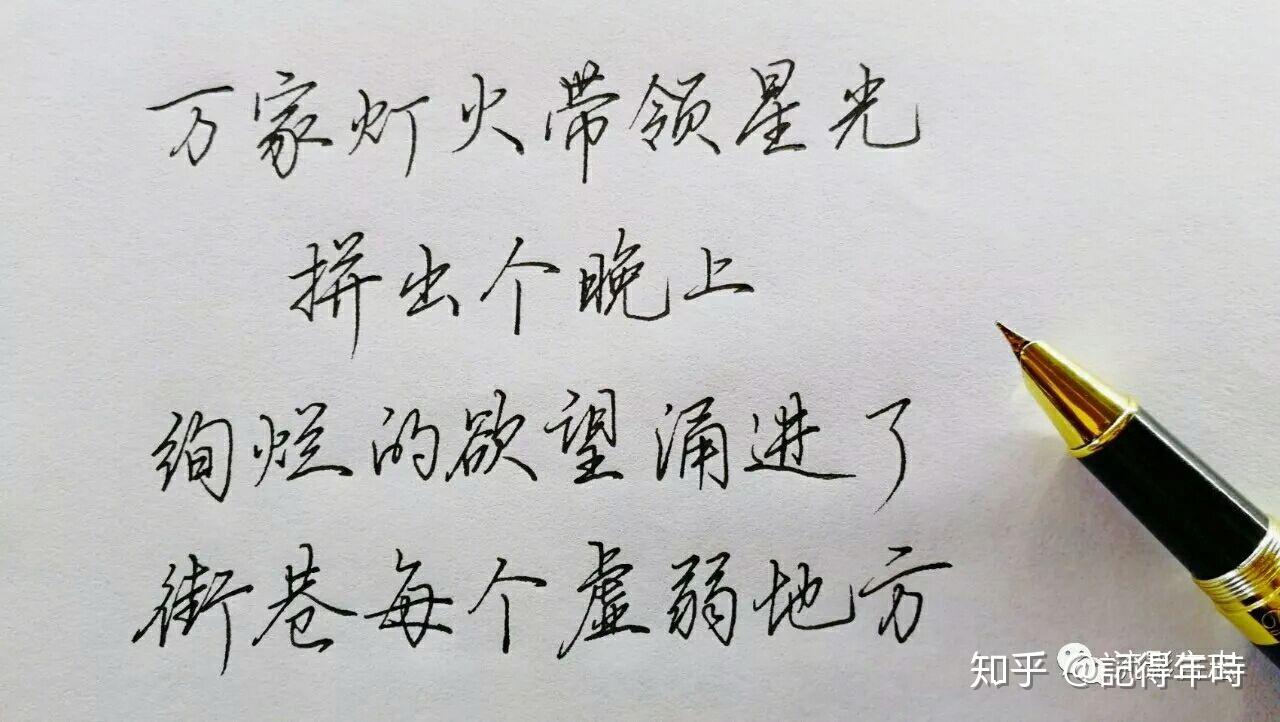 万家灯火带领星光
拼出个晚上
绚烂的欲望涌进了
街巷每个虚弱地方
知乎 @記得年時